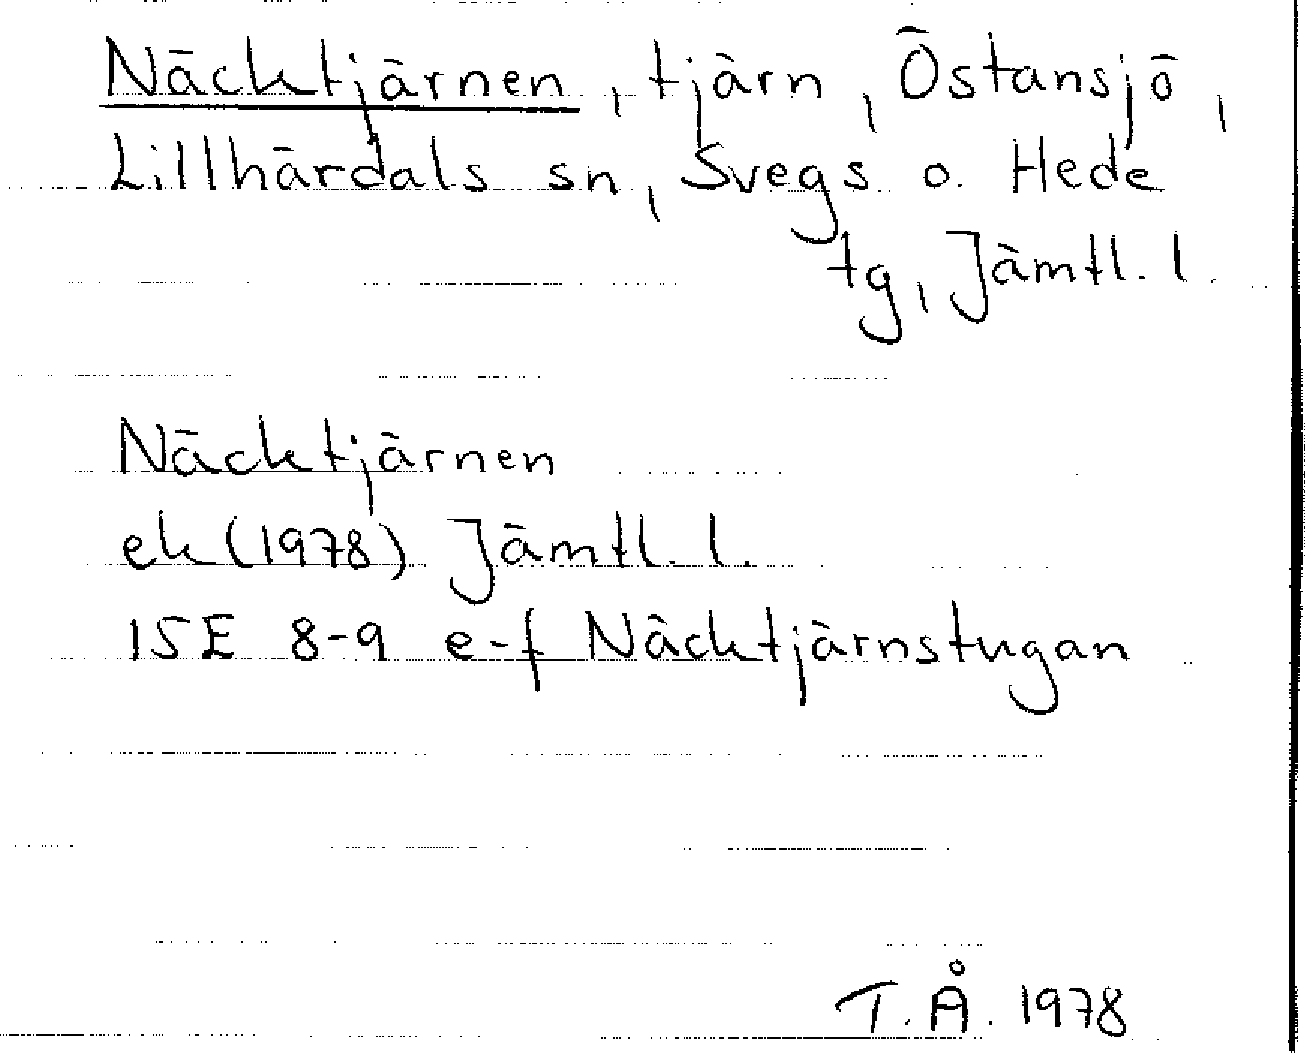 Näcktjärnen, tjärn, Östansjö,
Lillhärdals sn, Svegs o. Hede
tg, Jämtl. l.
Näcktjärnen
ek (1978) Jämtl. l.
15E 8-9 e-f Näcktjärnstugan
T. Å. 1978